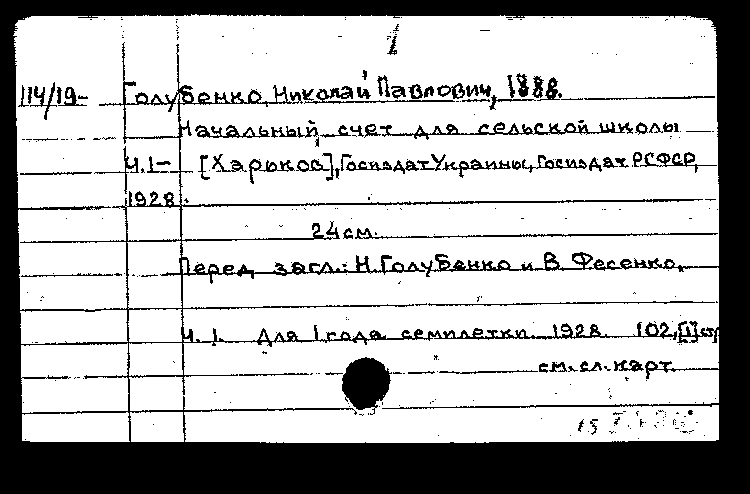 1
114/19- Голубенко, Николай Павлович, 1888.
Начальный счет для сельской школы
ч.1- [Харьков], Госиздат Украины, Госиздат РСФСР,
1928.
24 см.
Перед загл.: Н. Голубенко и В. Фесенко.
Ч. 1. Для 1 года семилетки. 1928. 102,[1] стр
см. сл. карт.
15